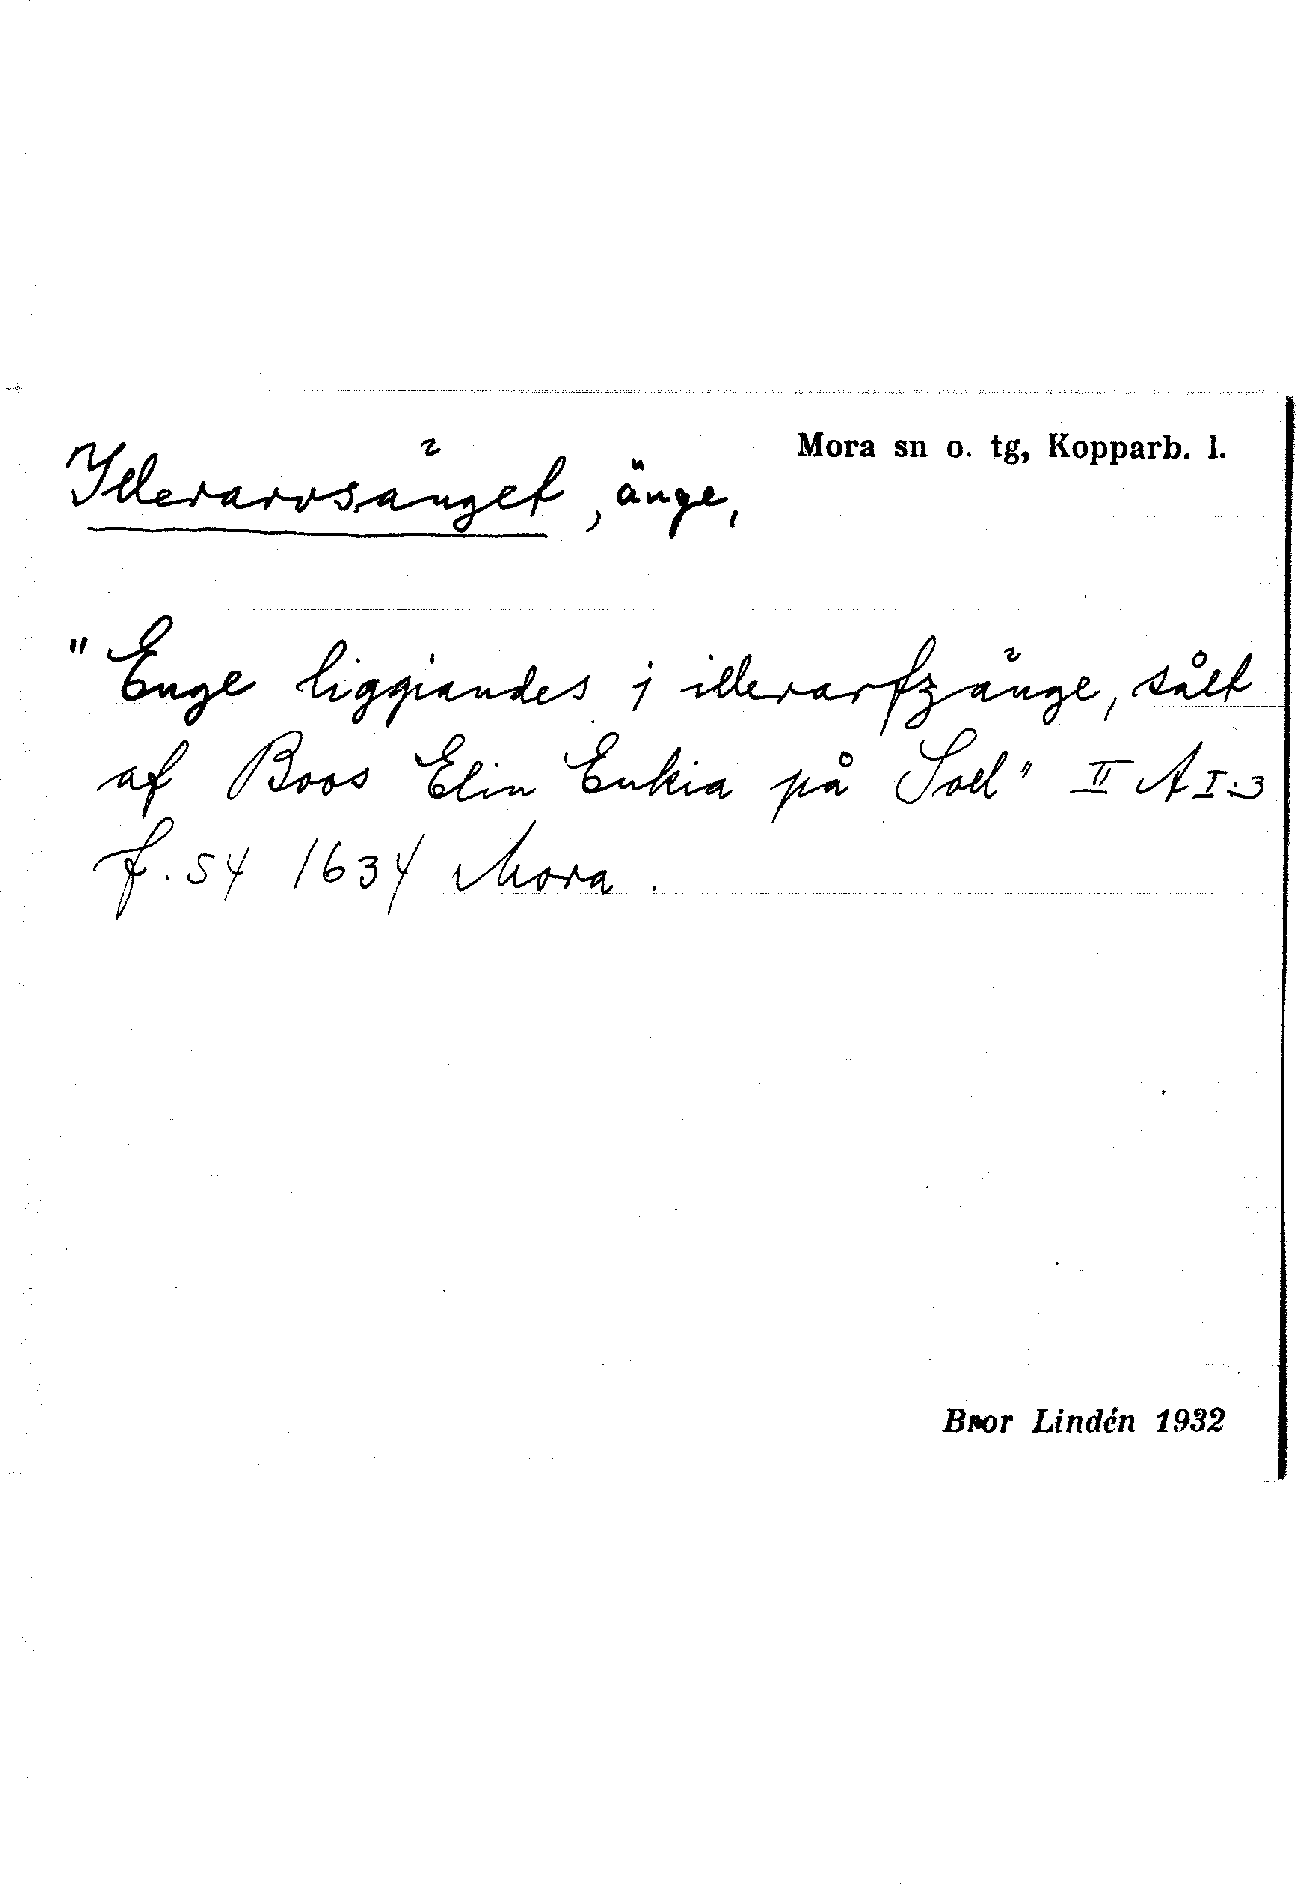 Mora sn o. tg, Kopparb. l.
Illerarvsänget, änge,
"Enge liggiandes i illerarfzänge, sålt
af Boos Elin Enkia på Soll" II A I:3
f. 54 1634 Mora.
Bror Lindén 1932